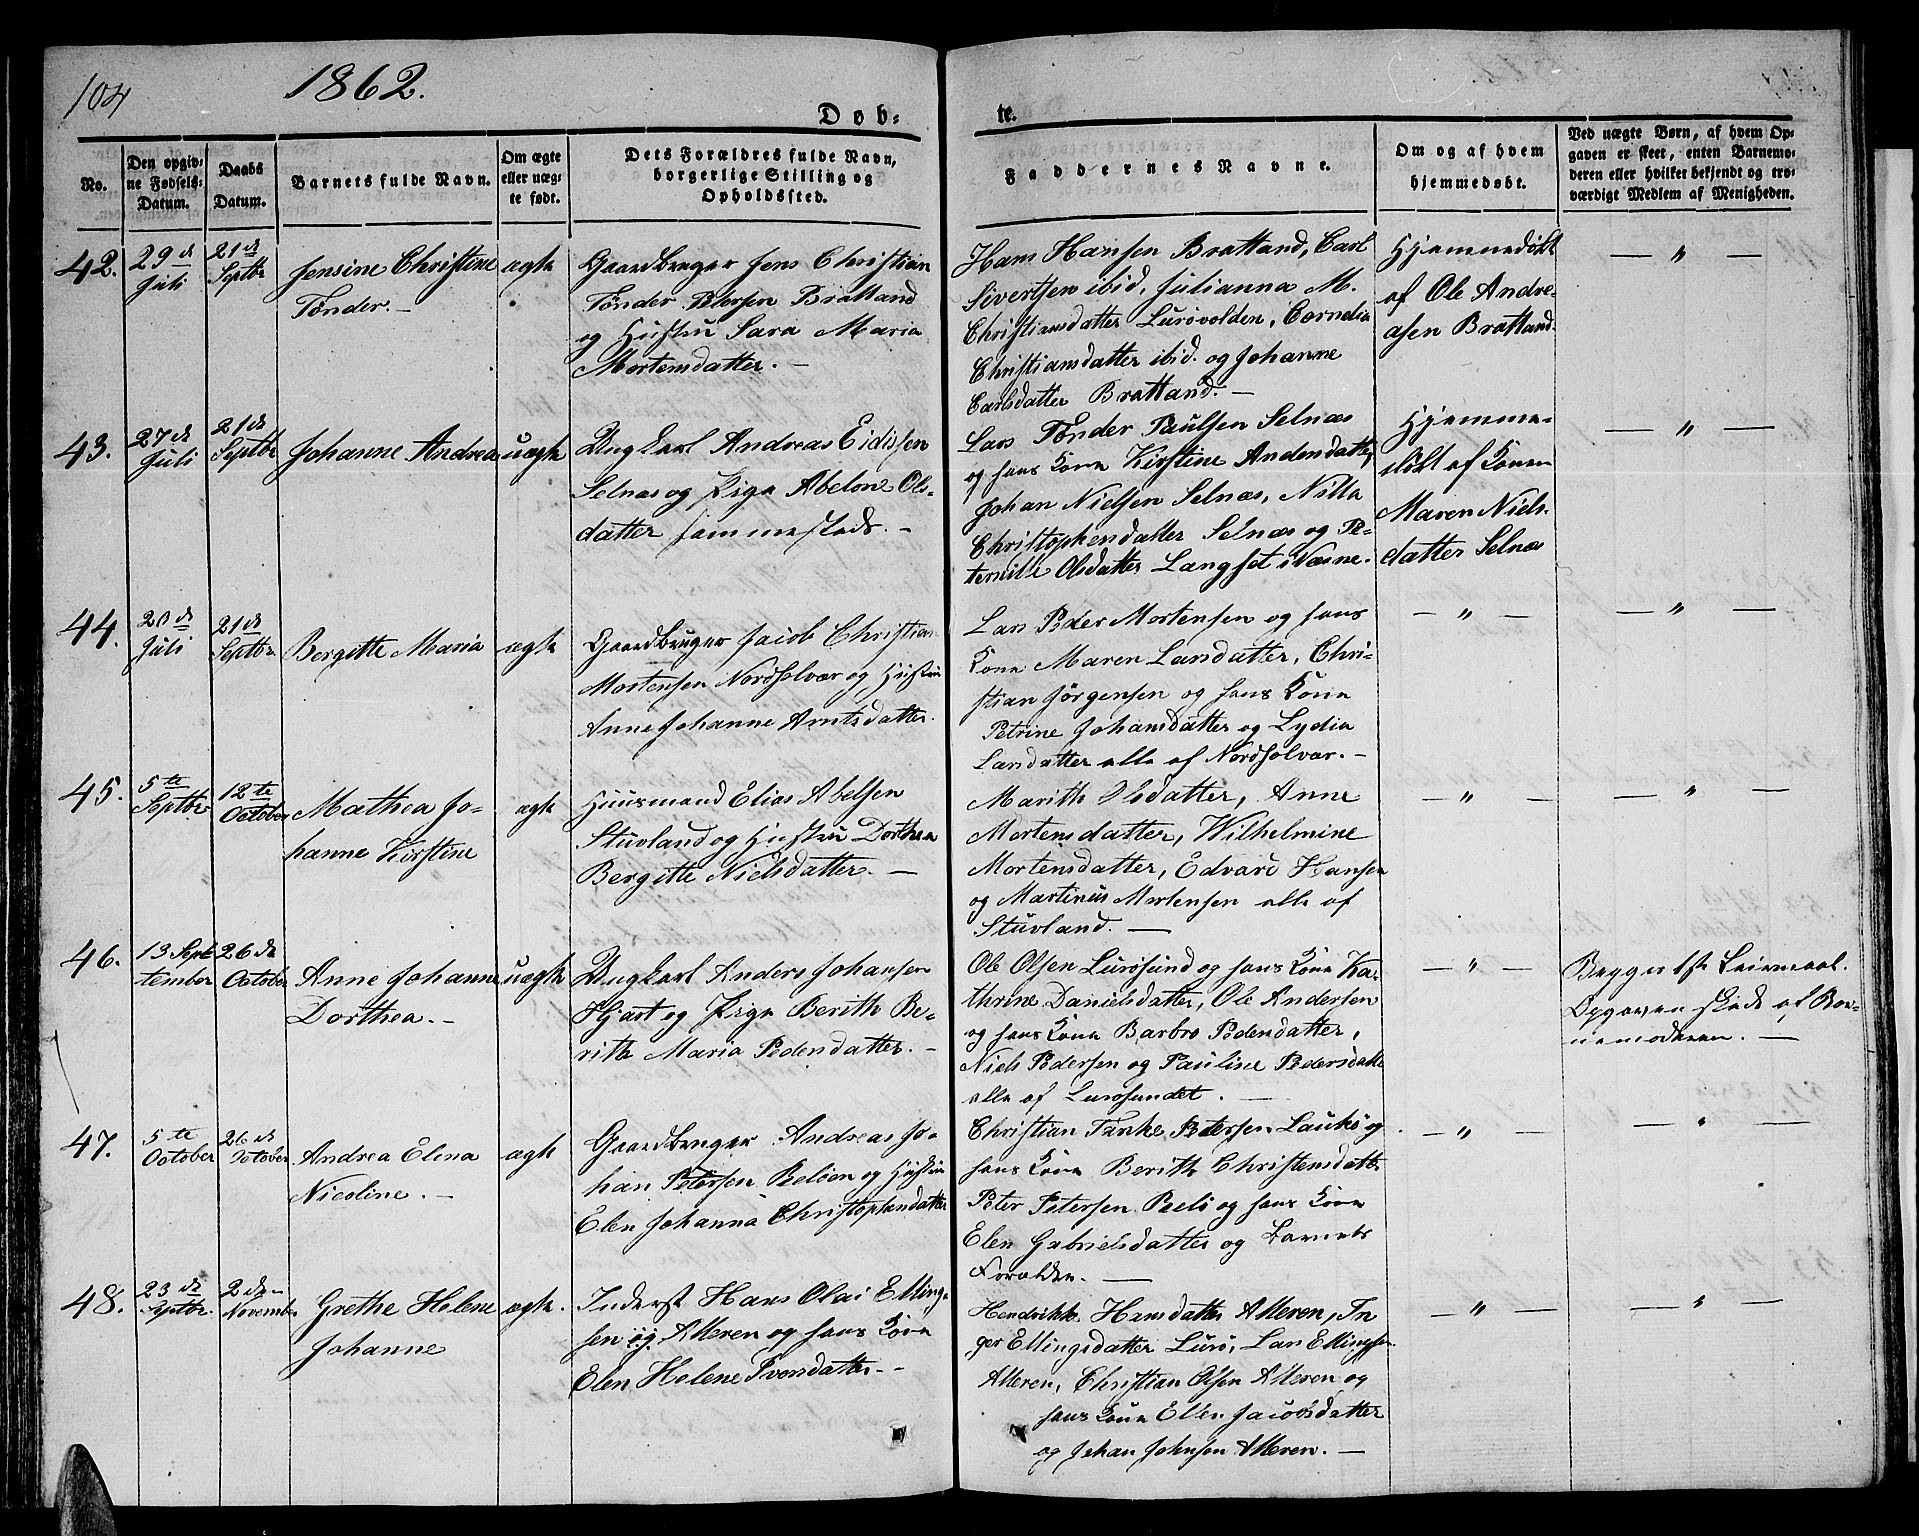 104
1862.
Døb-
te.
No.
Den opgiv-
ne Fødsels-
Datum.
Daabs
Datum.
Barnets fulde Navn.
Om ægte
eller uæg-
te født.
Dets Forældres fulde Navn,
borgerlige Stilling og
Opholdssted.
Faddernes Navne.
Om og af hvem
hjemmedøbt.
Ved uægte Børn, af hvem Op-
gaven er skeet, enten Barnemo-
deren eller hvilket bekjendt og tro-
værdige Medlem af Menigheden.
42.
29de
Juli
21de
Septbr
Jensine Christine
Tønder. -
ægte
Gaardbruger Jens Christian
Tønder Petersen Brattland
og Hustru Sara Maria
Mortensdatter. -
Hans Hansen Brattland, Carl
Sivertsen ibid, Julianna M.
Christiansdatter Lurøvolden, Cornelia
Christiansdatter ibid. og Johanne
Carlsdatter Brattland. -
Hjemmedøbt
af Ole Andre-
asen Brattland.
— " —
43.
27de
Juli
21de
Septbr
Johanne Andrea
uægte
Ungkarl Andreas Eidissen
Selnæs og Pige Abelone Ols-
datter sammesteds. -
Lars Tønder Paulsen Selnæs
og hans Kone Kirstine Andersdatter,
Johan Nielsen Selnæs, Nilla
Christophersdatter Selnæs og Pe-
ternille Olsdatter Langset i Næsne.
Hjemme-
døbt af Konen
Maren Niels-
datter Selnæs
— " —
44.
23de
Juli
21de
Septbr
Bergitte Maria
ægte
Gaardbruger Jacob Christian
Mortensen Nordsolvær og Hustru
Anne Johanne Arntsdatter.
Lars Peder Mortensen og hans
Kone Maren Larsdatter, Chri-
stian Jørgensen og hans Kone
Petrine Johansdatter og Lydia
Larsdatter alle af Nordsolvær. -
— " —
— " —
45.
5te
Septbr
12te
October
Mathea Jo-
hanne Kirstine
ægte
Huusmand Elias Abelsen
Stuvland og Hustru Dorthea
Bergitte Nielsdatter. -
Marith Olsdatter, Anne
Mortensdatter, Wilhelmine
Mortensdatter, Edvard Hansen
og Martinus Mortensen alle af
Stuvland. —
— " —
— " —
46.
13 Sept-
tember
26de
October
Anne Johanne
Dorthea. -
uægte
Ungkarl Anders Johansen
Hjart og Pige Berith Be-
rith Maria Pedersdatter. -
Ole Olsen Lurøsund og hans Kone Ka-
thrine Danielsdatter, Ole Andersen
og hans Kone Barbro Pedersdatter,
Niels Pedersen og Pauline Pedersdatter
alle af Lurøsundet. -
— " —
Begges 1st Leiermaal.
Opgaven skede af Bar-
nemoderen. —
47.
5te
October
26de
October
Andrea Elena
Nicoline. -
ægte
Gaardbruger Andreas Jo-
han Petersen Reløen og Hustru
Elen Johanna Christophersdatter
Christian Fanke Petersen Laukø og
hans Kone Berith Christensdatter
Peter Petersen Reelø og hans Kone
Elen Gabrielsdatter og Barnets
Forældre. —
— " —
— " —
48.
23de
Septbr.
2den
Novembr
Grethe Helene
Johanne
ægte.
Inderst Hans Olai Elling-
sen og. Alteren og hans Kone
Elen Helene Iversdatter -
Hendrikke Hansdatter Alteren, In-
ger Ellingsdatter Lurø, Lars Ellingsen
Alteren, Christian Olsen Alteren og
hans Kone Ellen Jacobsdatter
og Johan Johnsen Alteren. —
— " —
— " —